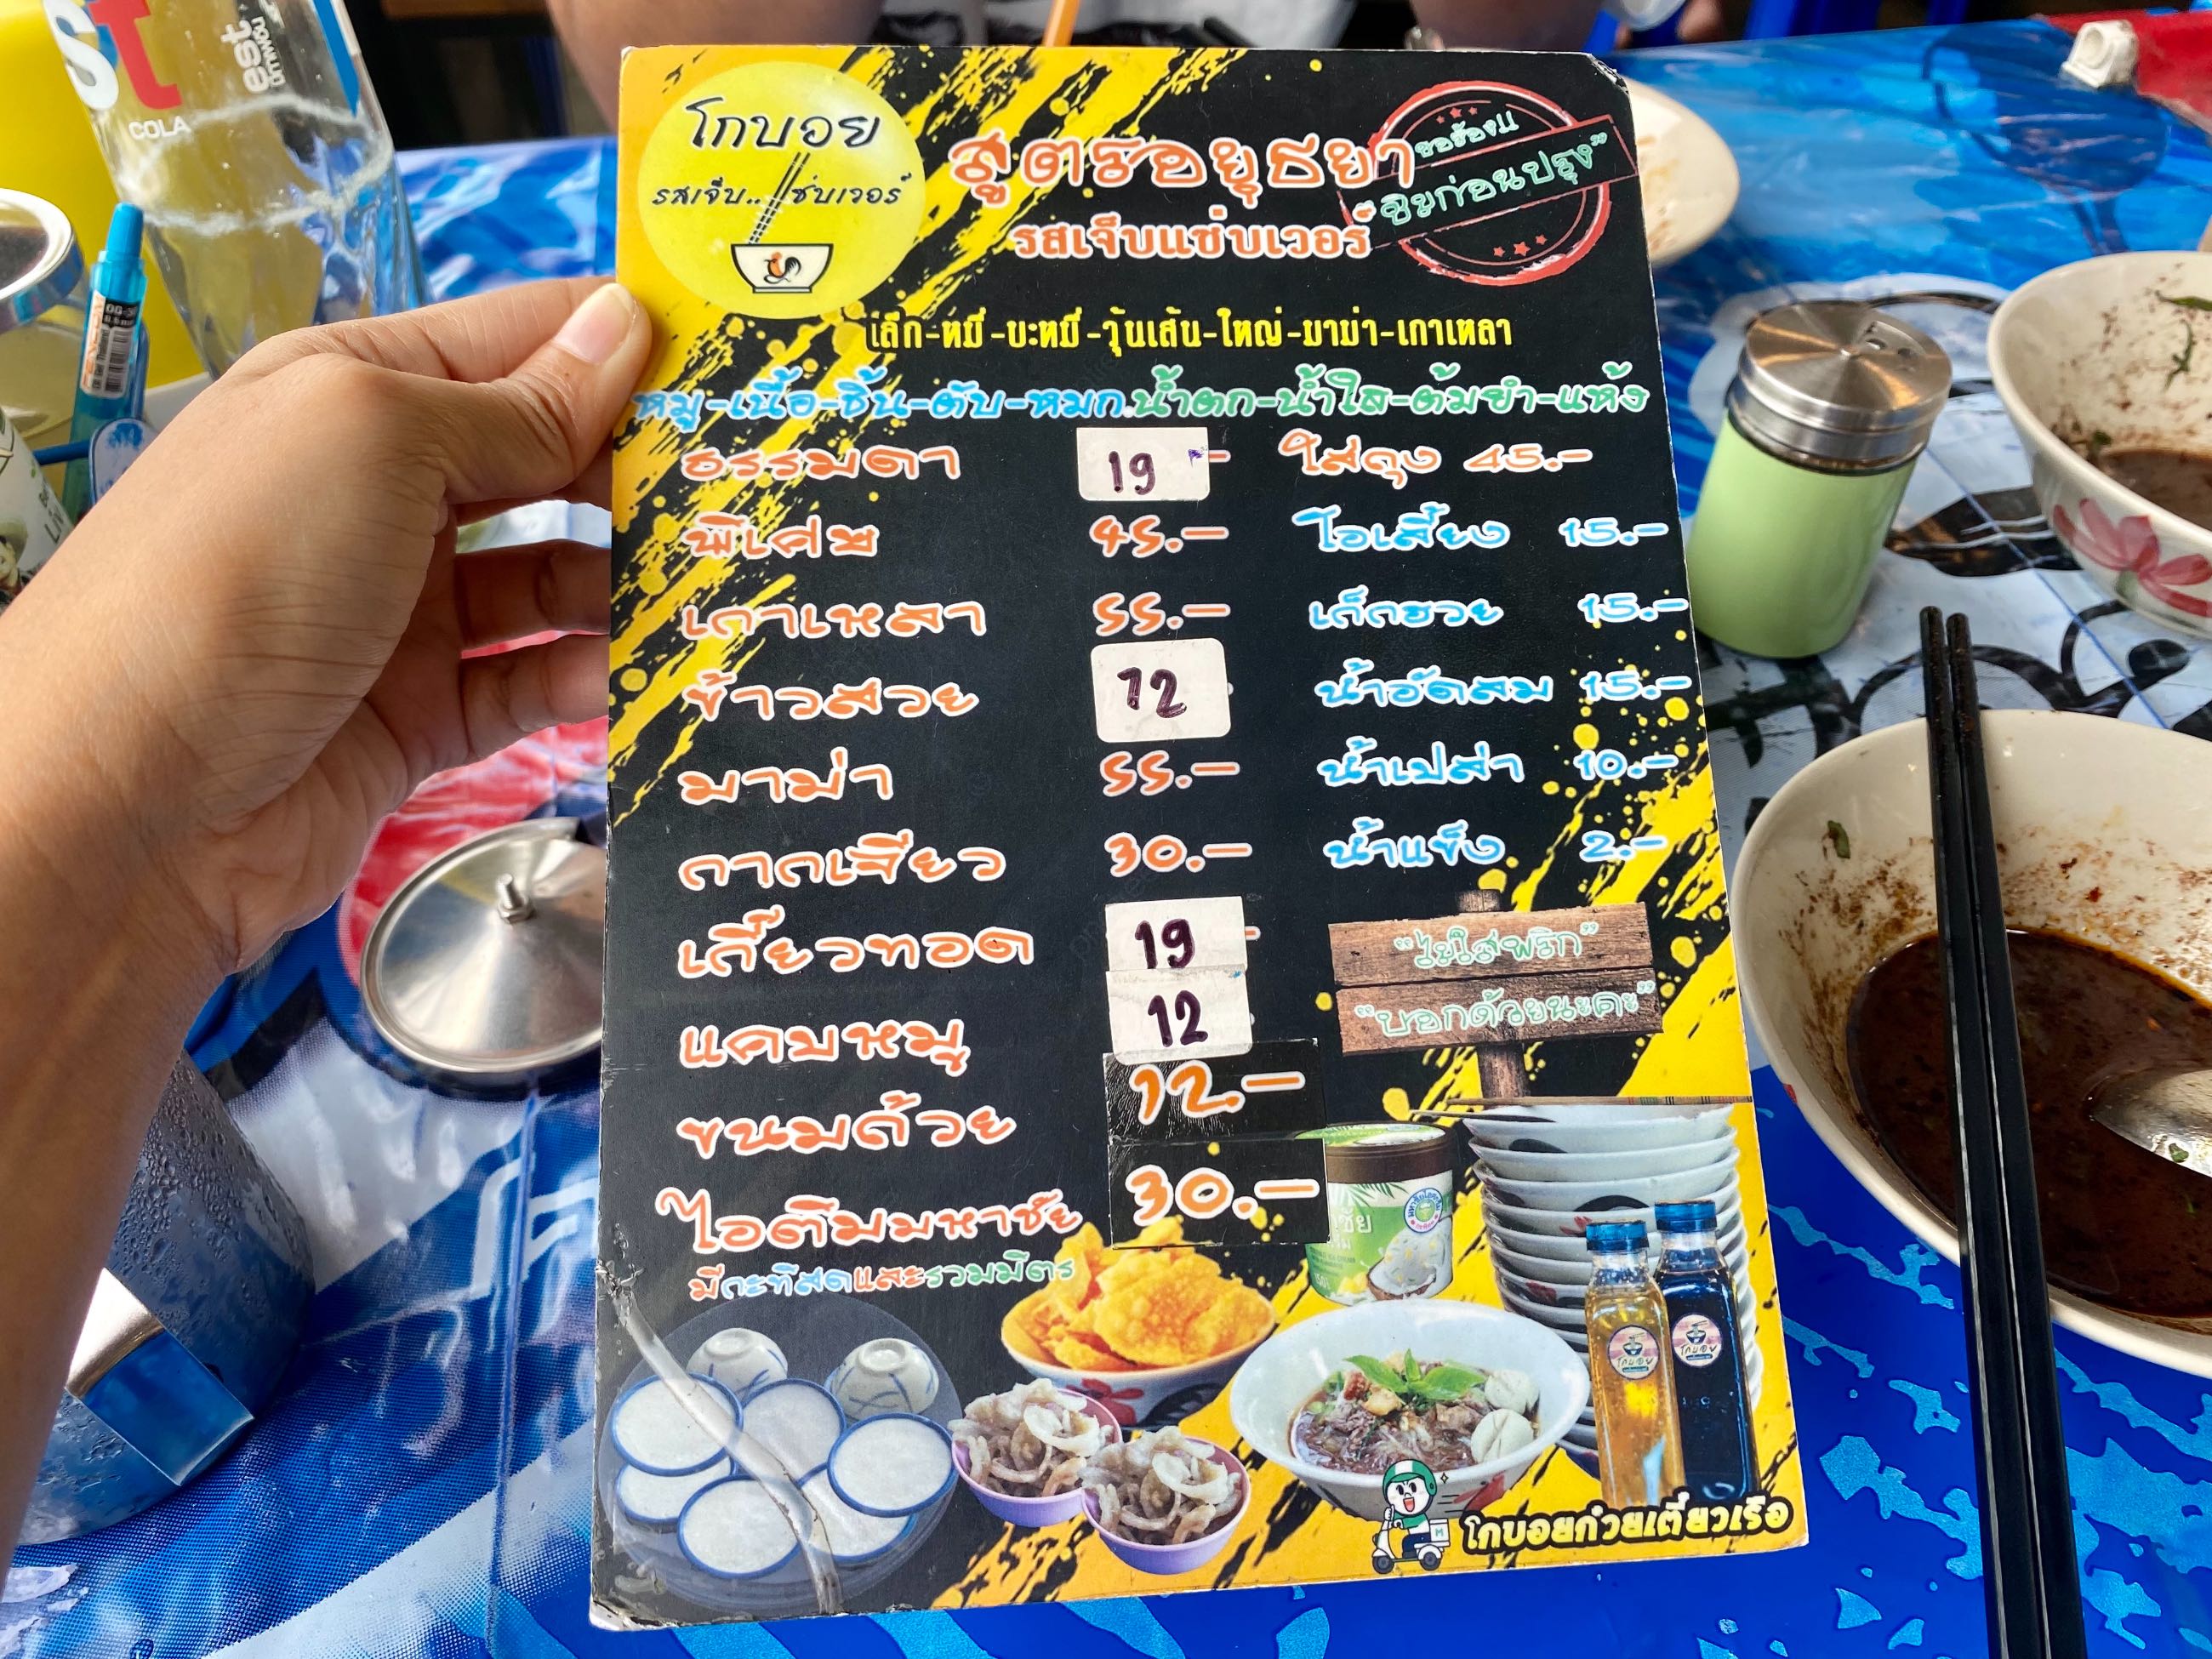 st
COLA
est
โกบอย
รสเจ็บ..แซ่บเวอร์
สูตรอยุธยา
รสเจ็บแซ่บเวอร์
ขอร้อง!!
"ชิมก่อนปรุง"
เล็ก-หมี่-บะหมี่-วุ้นเส้น-ใหญ่-มาม่า-เกาเหลา
หมู-เนื้อ-ชิ้น-ตับ-หมก น้ำตก-น้ำใส-ต้มยำ-แห้ง
ธรรมดา 19 -
พิเศษ 45.-
เกาเหลา 55.-
ข้าวสวย 12
มาม่า 55.-
กากเจียว 30.-
เกี๊ยวทอด 19 -
แคบหมู 12
ขนมถ้วย 12.-
ไอติมมหาชัย 30.-
มีกะทิสดและรวมมิตร
ใส่ถุง 45.-
โอเลี้ยง 15.-
เก็กฮวย 15.-
น้ำอัดลม 15.-
น้ำเปล่า 10.-
น้ำแข็ง 2.-
"ไม่ใส่พริก"
"บอกด้วยนะคะ"
โกบอย
โกบอย
โกบอยก๋วยเตี๋ยวเรือ